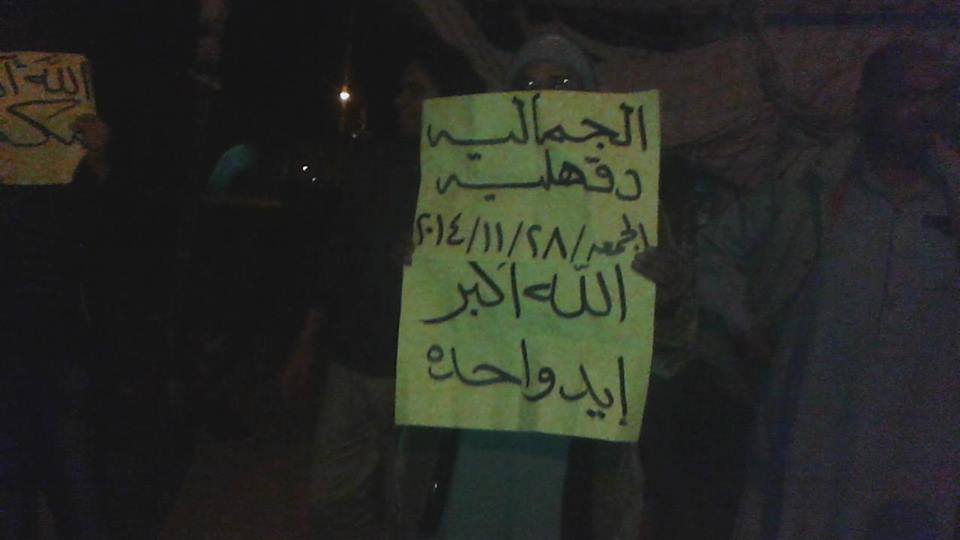 الجماليه
دقهليه
الجمعه/٢٨/١١/٢٠١٤
الله أكبر
إيد واحده
الله أ